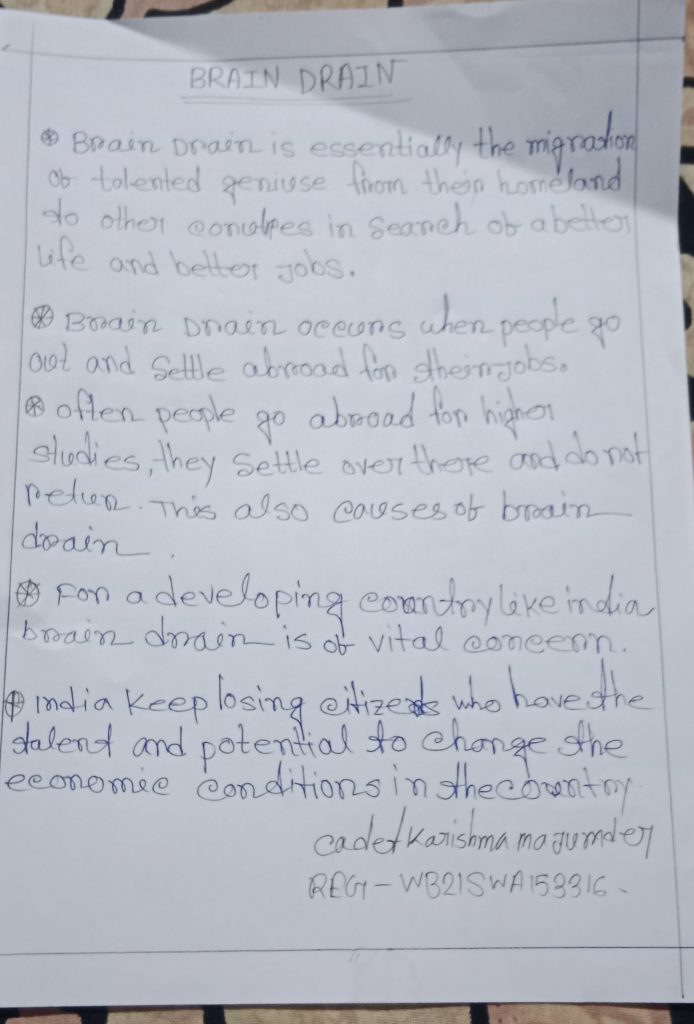 BRAIN DRAIN
Brain Drain is essentially the migration
of talented geniuse from their homeland
to other countries in search of a better
life and better jobs.
Brain Drain occurs when people go
out and settle abroad for their jobs.
often people go abroad for higher
studies, they settle over there and do not
retun. This also causes of brain
drain.
For a developing country like india
brain drain is of vital concern.
india keep losing citizens who have the
talent and potential to change the
economic conditions in the country.
cadet Karishma mojumder
REG-WB21SWA153316.